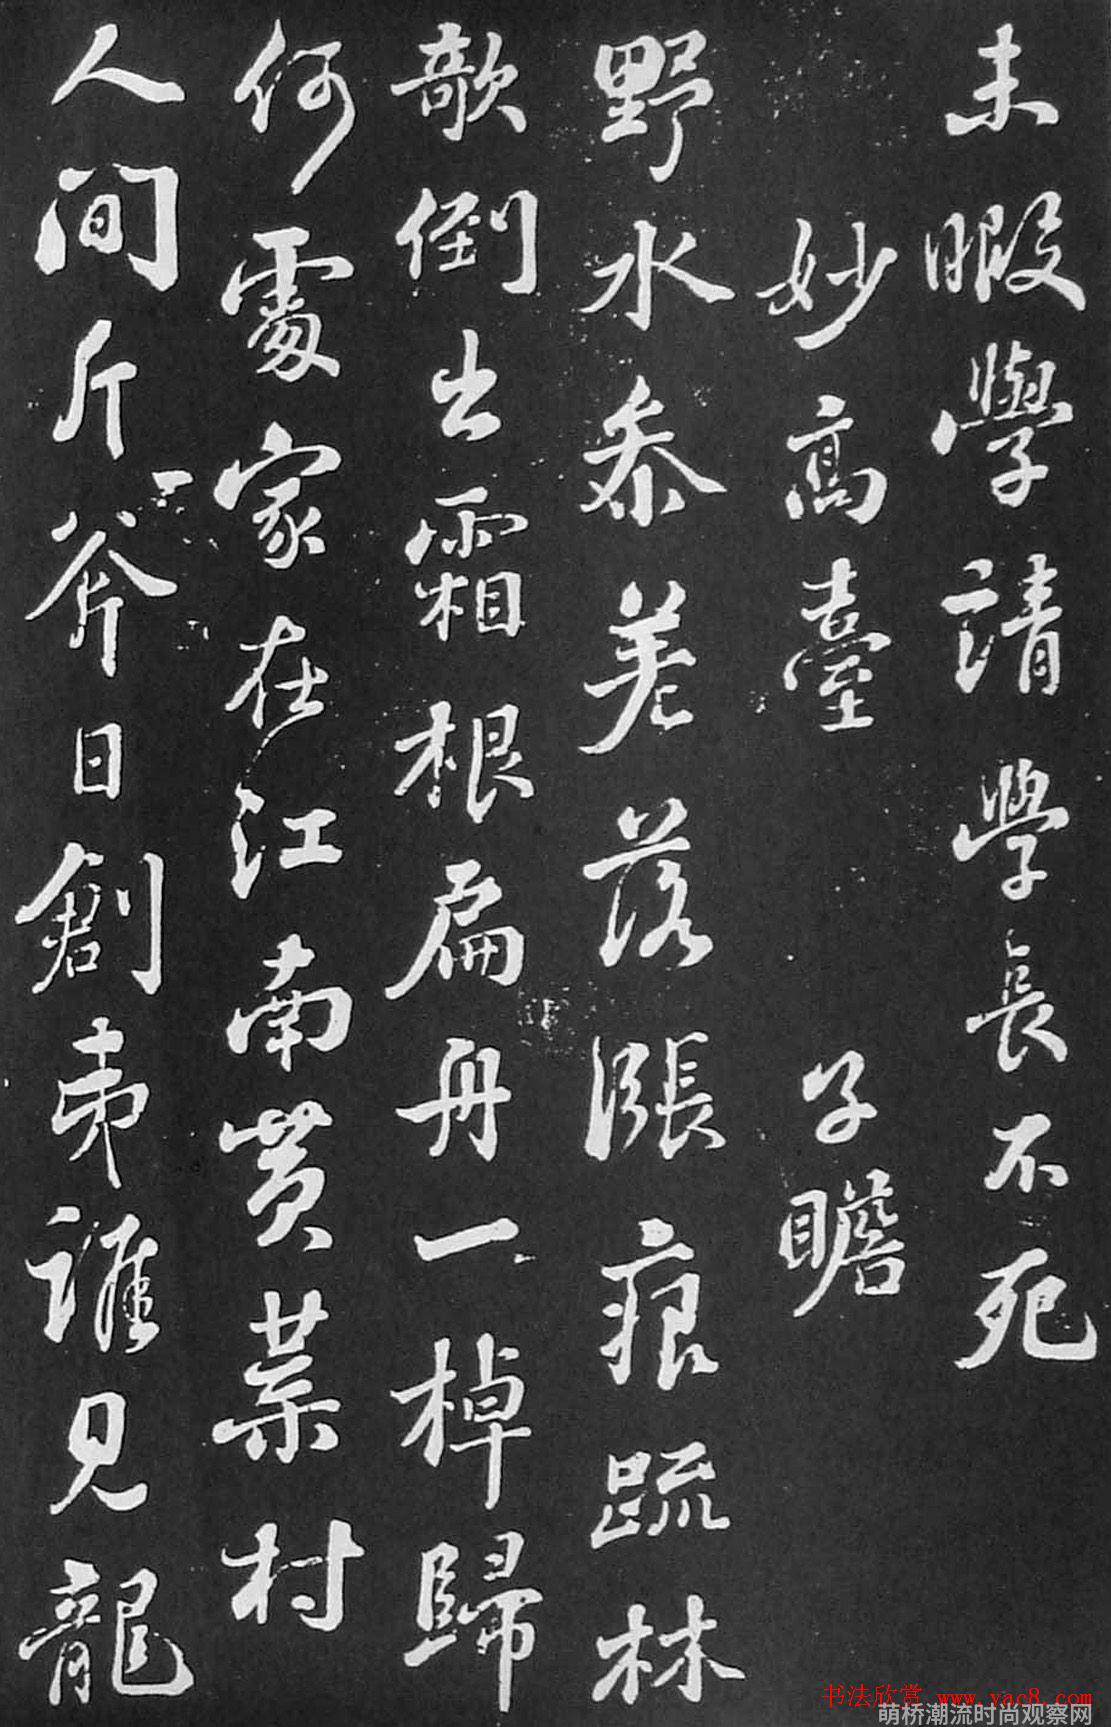 未暇學請學長不死
妙高臺 子瞻
野水參差落漲痕疏林
欹倒出霜根扁舟一棹歸
何處家在江南黃葉村
人間斤斧日創夷誰見龍
书法欣赏 www.yac8.com
萌桥潮流时尚观察网